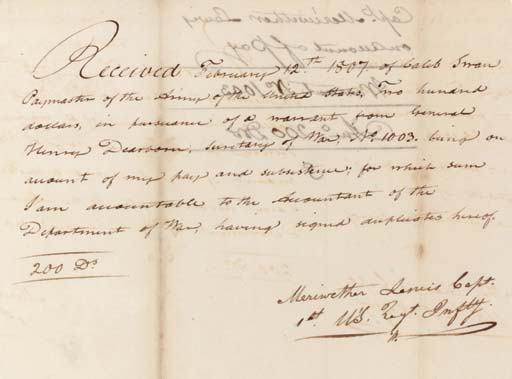 Received February 12th 1807 of Caleb Swan
Paymaster of the Army of the United States, Two hundred
dollars, in pursuance of a warrant from General
Henry Dearborn, Secretary of War, No. 1003. being on
account of my pay and subsistence; for which sum
I am accountable to the Accountant of the
Department of War, having signed duplicates hereof
200 Ds
Meriwether Lewis Capt.
1st. U'S. Regt. Infty.